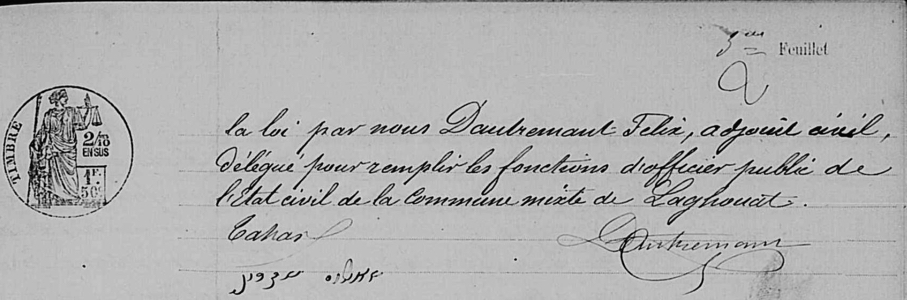 5me Feuillet
TIMBRE
2/10
EN SUS
1F.
50c
la loi par nous Dautremant Félix, adjoint civil,
délégué pour remplir les fonctions d'officier public de
l'Etat civil de la commune mixte de Laghouat.
Tahar Dautremant